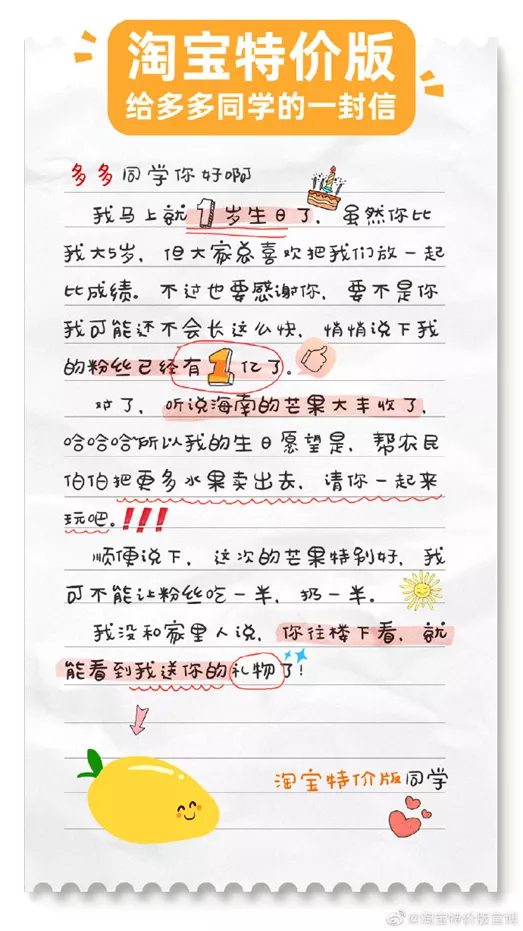 淘宝特价版
给多多同学的一封信
多多同学你好啊
我马上就1岁生日了，虽然你比
我大5岁，但大家总喜欢把我们放一起
比成绩。不过也要感谢你，要不是你
我可能还不会长这么快，悄悄说下我
的粉丝已经有1亿了。
对了，听说海南的芒果大丰收了，
哈哈哈所以我的生日愿望是，帮农民
伯伯把更多水果卖出去，请你一起来
玩吧。!!!
顺便说下，这次的芒果特别好，我
可不能让粉丝吃一半，扔一半。
我没和家里人说，你往楼下看，就
能看到我送你的礼物了!
淘宝特价版同学
@淘宝特价版官博